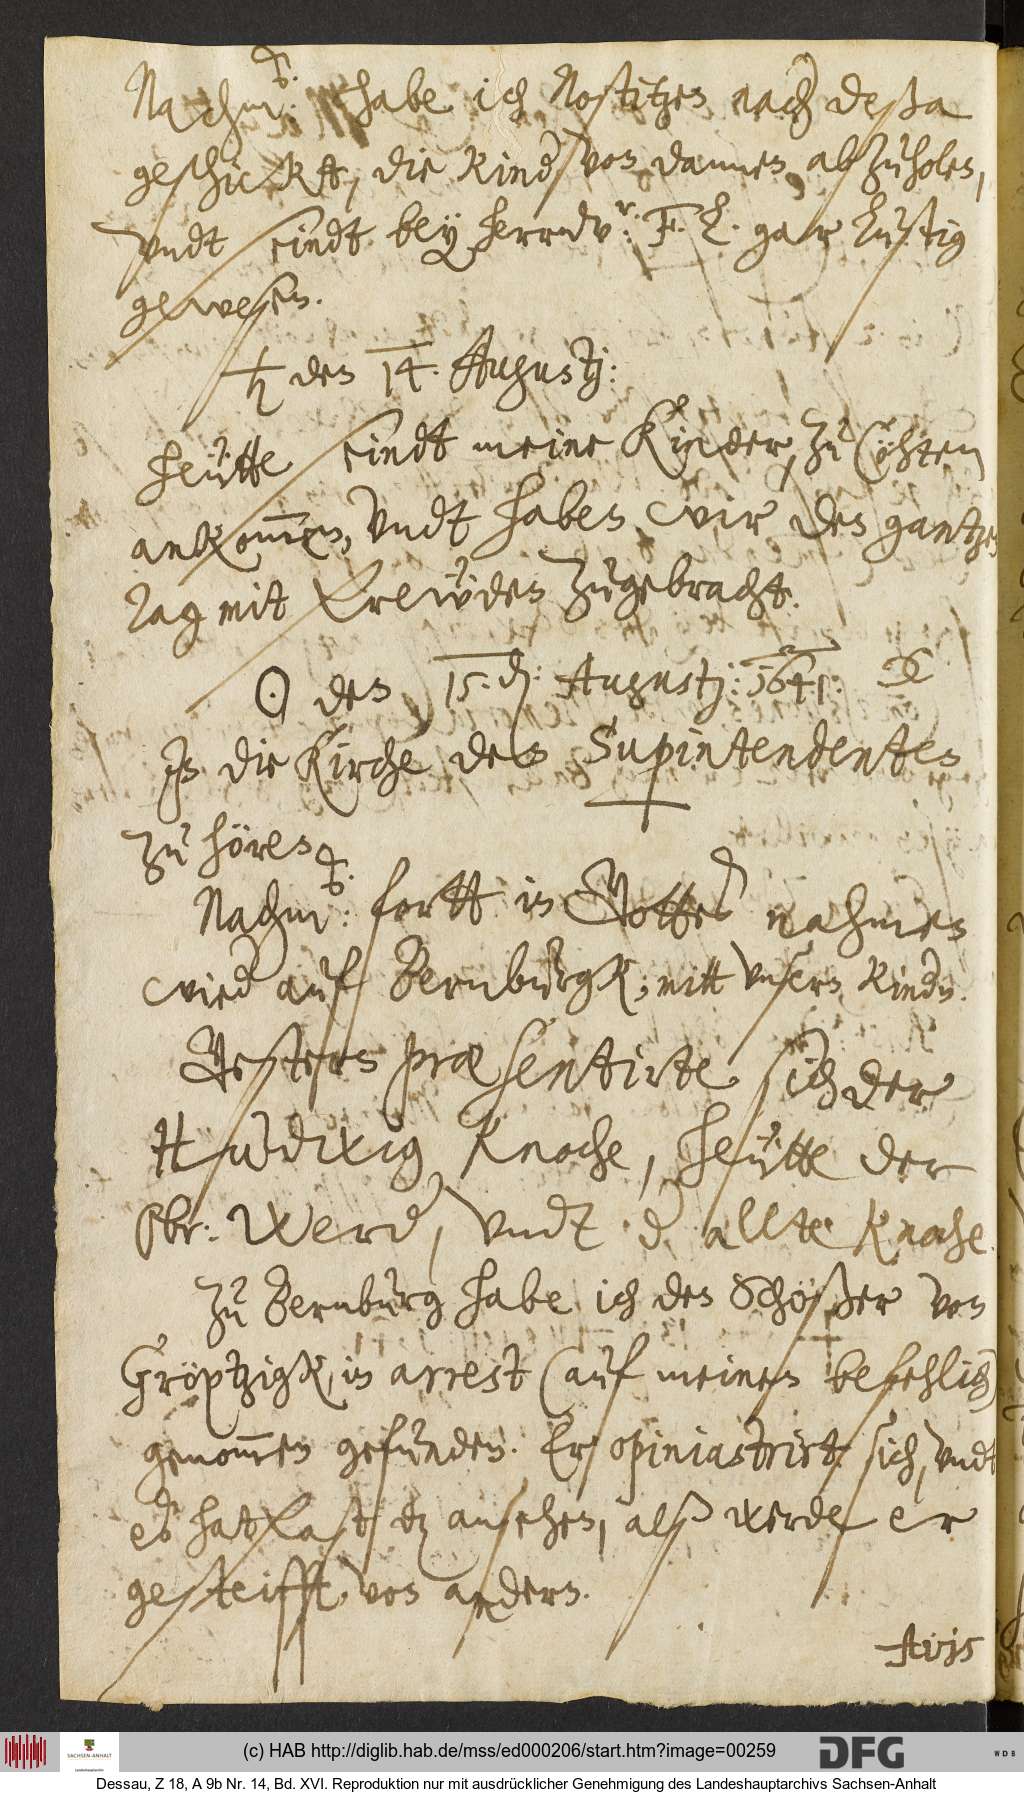 Nachm: habe ich Nostitzen nach Deßa
geschickt, die Kind von dannen abzuholen,
vndt sindt bey herrn vr: F. L. gar lustig
gewesen.
♄ den 14. Augustj:
Heütte sindt meine Kinder, zu Cöhten
ankom̅en, vndt haben wir den gantzen
Tag mit frewden zugebracht.
☉ den 15.d: Augustj: 1641.
In die Kirche den Supintendenten
zu hören
Nachm: fortt in Gottes nahmen
wied auf Bernburgk; mitt vnsern Kindn.
Gestern præsentirte sich der
H Ludwig Knoche, heütte der
Obr: Werd, vndt d allte Knoche.
Zu Bernburg habe ich den Schößer von
Gröptzigk, in arrest (auf meinen befehlich)
genom̅en gefunden. Er opiniastrirt sich, vndt
es hat fast dz ansehen, alß werde er
gesteifft, von andern.
Avis
(c) HAB http://diglib.hab.de/mss/ed000206/start.htm?image=00259
SACHSEN-ANHALT
Landeshauptarchiv
DFG
WDB
Dessau, Z 18, A 9b Nr. 14, Bd. XVI. Reproduktion nur mit ausdrücklicher Genehmigung des Landeshauptarchivs Sachsen-Anhalt